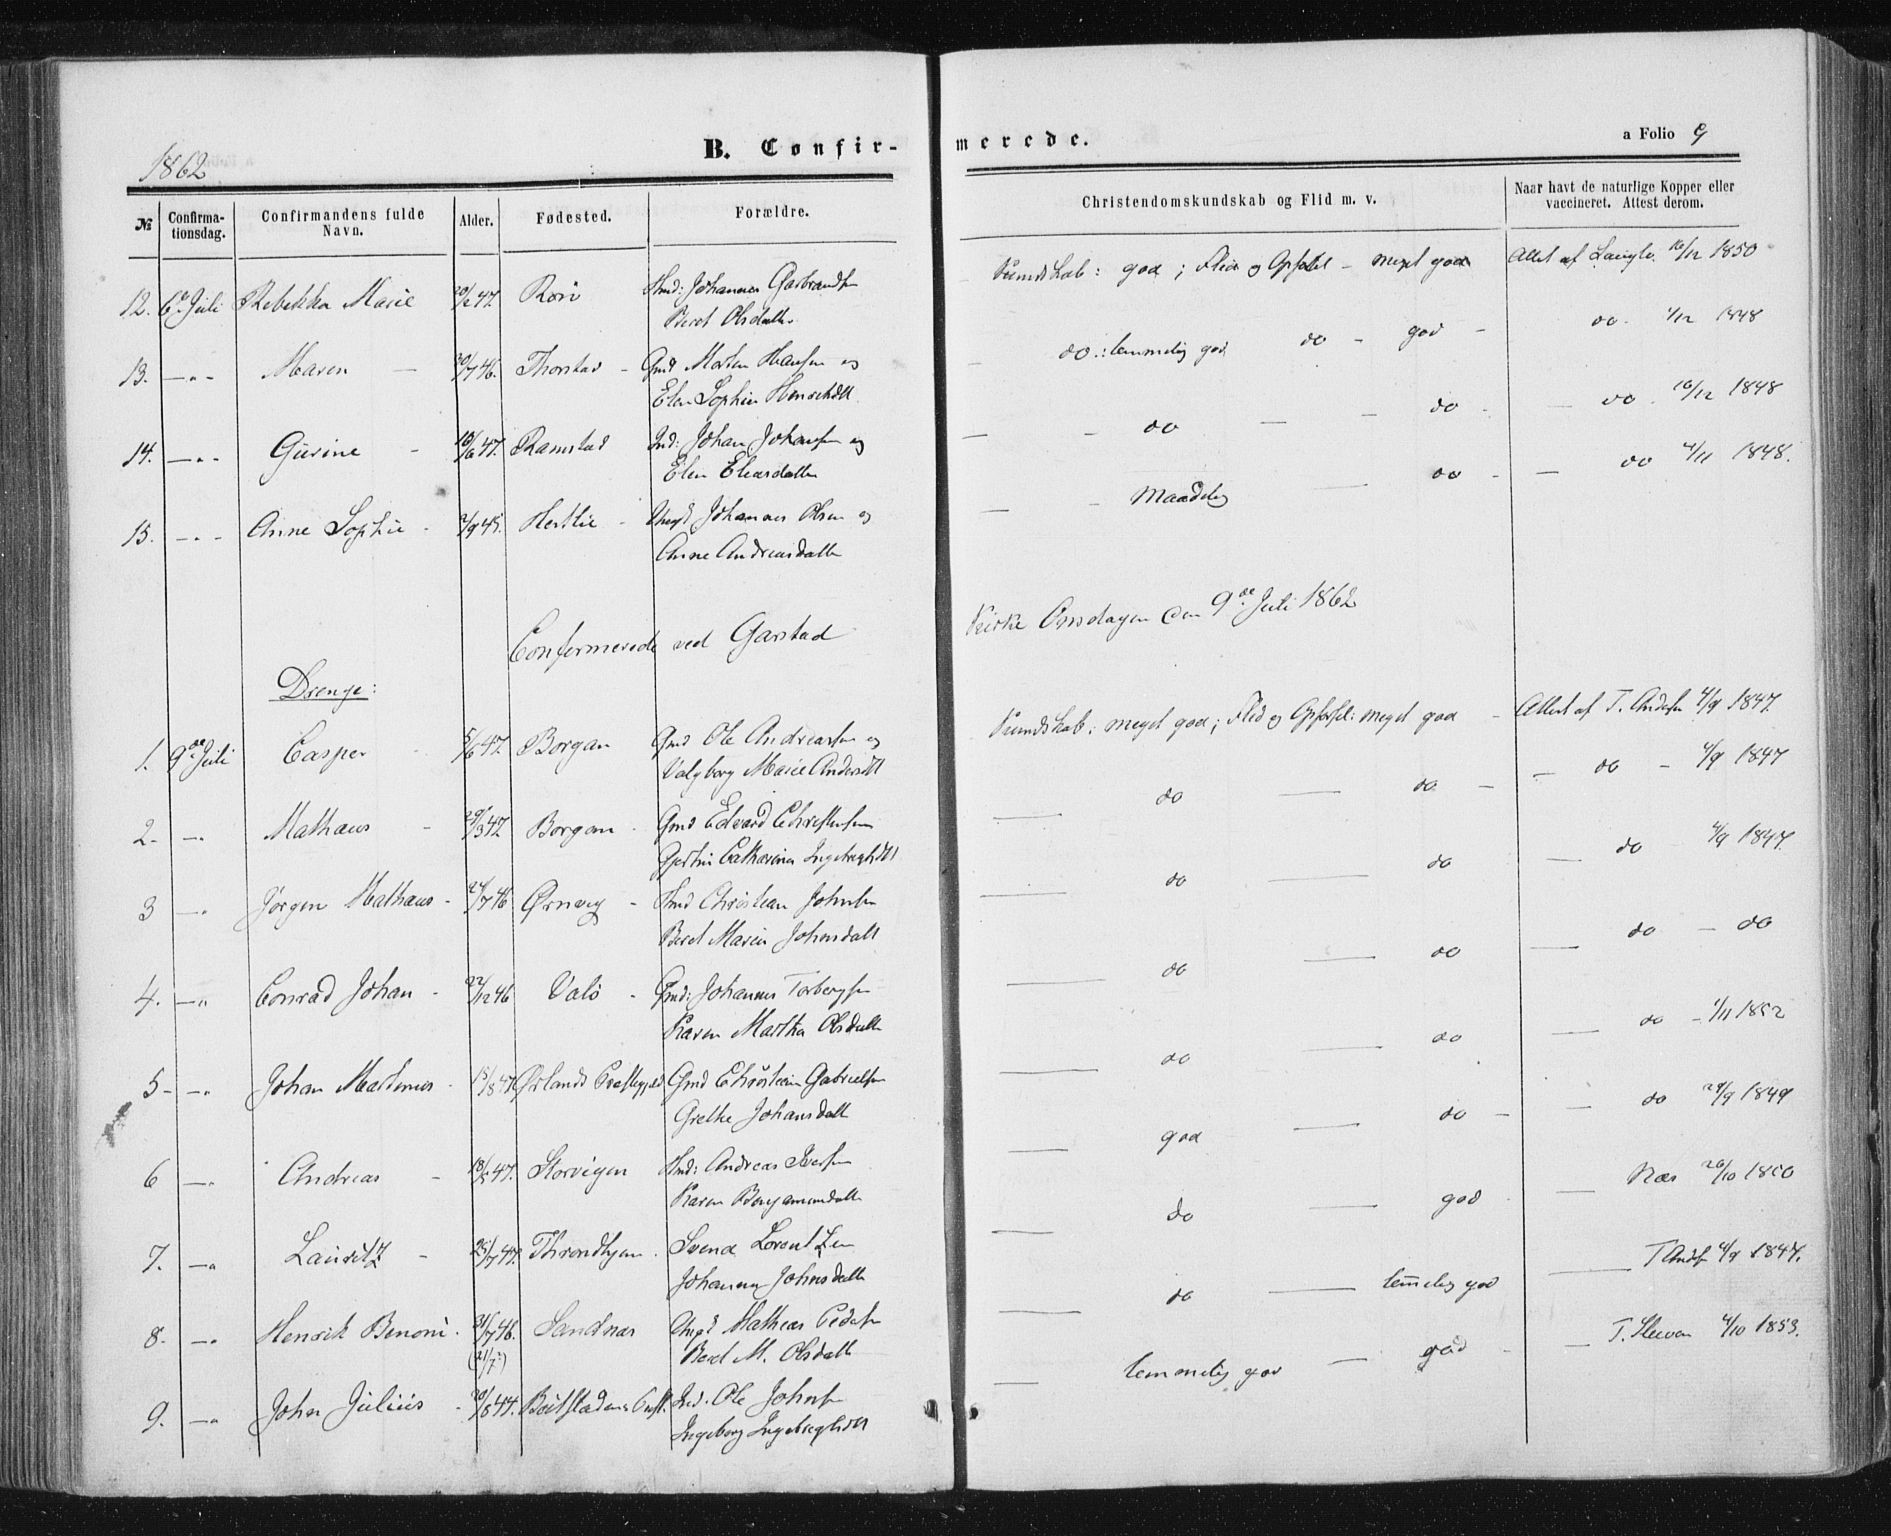 1862
B. Confir-
merede.
a Folio 9
№
Confirma-
tionsdag.
Confirmandens fulde
Navn.
Alder.
Fødested.
Forældre.
Christendomskundskab og Flid m. v.
Naar havt de naturlige Kopper eller
vaccineret. Attest derom.
12. 6te Juli Rebekka Marie 20/2 47. Rörö Hmd: Johannes Garbrandsen
Beret Olsdatter
Kundskab: god; Flid og Opførsel - meget god Attest af 16/12 1850
13. — " - Maren — 30/7 46. Thorstad - Gmd Morten Hansen og
Elen Sophie Henrikdtt.
— do.: temmelig god do - god - do. 4/12 1848
14. — " - Gurine - 10/6 47. Ramstad Ind: Johan Johansen og
Elen Eliasdatter
— - do — - do - — do. 16/12 1848
15. — " - Anne Sophie - 2/9 45. Hestlie - Johannes Olsen og
Anne Andreasdatter
— - Maadelig — do - — do 4/11 1848.
Confirmerede ved Garstad
Kirke Onsdagen den 9de Juli 1862
Drenge:
1. 9de Juli Casper - 5/6 47. Borgan Gmd Ole Andreassen og
Valgborg Marie Andersdtt
Kundskab: meget god; Flid og Opførsel: meget god - Attest af T. Andersen 4/9 1847.
2. — " Mathæus - 29/3 47. Borgan - Gmd Edvard Christensen
Catharina Ingebrigtsdtt
— do — do - — do - 4/9 1847
3 — " Jørgen Mathæus - 24/7 46 Ørnvig - Hmd Christian Johnsen
Beret Maria Johnsdatt
— do — do — do 4/9 1847.
4. — " Conrad Johan - 22/12 46 Valö - Gmd: Johannes Torbergsen
Karen Martha Olsdatter
— do — do — do - do
5 - — " Johan Martinus - 15/8 47 Ørlands Præstegjeld Gmd Christian Gabrielsen
Grethe Johansdatt
— do — do — do - 1/11 1852
6 — " Andreas - 18/5 47. Storvigen Hmd: Andreas Iversen
Karen Benjaminsdatter
— god — do - — do 29/9 1849
7. — " Lauritz - 25/7 47. Throndhjem. Svend Lorentzen
Johanna Johnsdatter
— do — god — Næs 26/10 1850
8. — " Henrik Benoni. 31/7 46. Sandnæs Mathias Pedersen
(21/7?) Beret M. Olsdatter
— do — temelig god — T Ands 4/9 1847.
9. — " John Julius - 20/8 44. Ind. Ole Johnsen
Ingeborg Ingebrigtsdtt
— temmelig god — god - — 4/10 1853.